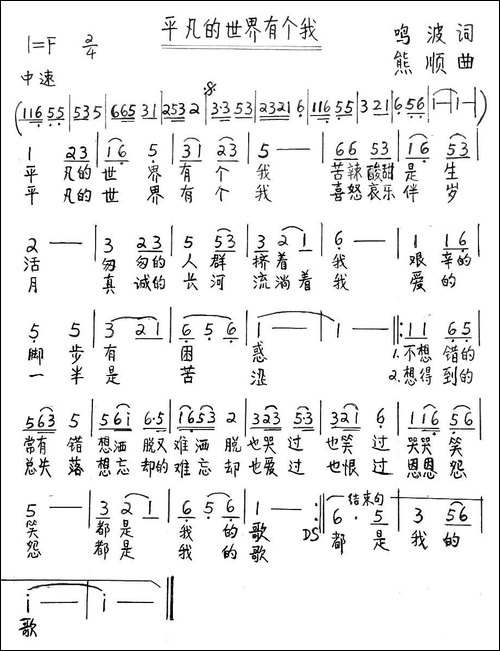 平凡的世界有个我
1=F 2/4 鸣波词
中速 熊顺曲
(116 55 | 535 | 665 31 | 253 2 | 3·3 53 | 2321 6 | 116 55 | 321 | 6·56 | 1— | 1— )
1 23 | 16 5 | 31 23 | 5 — | 66 53 | 16 53 |
平 凡的 世 界 有 个 我 苦辣 酸甜 是 生
平 凡的 世 界 有 个 我 喜怒 哀乐 伴 岁
2 — | 3 23 | 5 53 | 3 2 1 | 6 — | 1 16 |
活 匆 匆的 人 群 挤着 我 艰 辛的
月 真 诚的 长 河 流淌着 我 爱 的
5 5 | 3 21 | 6 5 6 | 1 — | 1 — ‖: 11 65 |
脚 步 有 困 惑 1.不想 错的
一 半 是 苦 涩 2.想得 到的
563 5 | 561 6·5 | 1653 2 | 323 5·3 | 321 6 | 116 56 |
常有 错 想洒 脱又 难洒 脱 也哭 过 也笑 过 哭哭 笑
总失 落 想忘 却的 难忘 却 也爱 过 也恨 过 恩恩 怨
5 — | 3 2 1 | 6 5 6 | 1 — :‖ 结束句 6· 5 | 3 56 |
笑 都是 我 的 歌 DS 都 是 我 的
怨 都是 我 的 歌
i — | i — ‖
歌